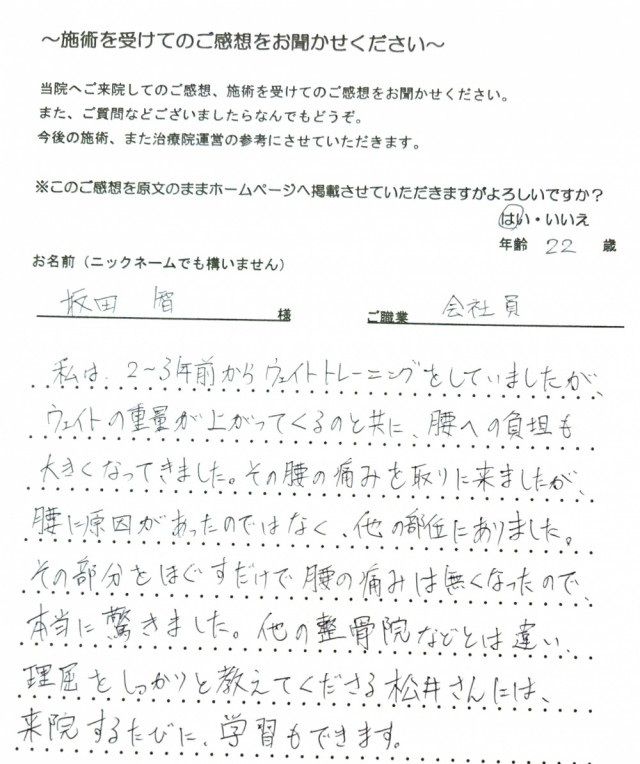 ～施術を受けてのご感想をお聞かせください～
当院へご来院してのご感想、施術を受けてのご感想をお聞かせください。
また、ご質問などございましたらなんでもどうぞ。
今後の施術、また治療院運営の参考にさせていただきます。
※このご感想を原文のままホームページへ掲載させていただきますがよろしいですか？
はい・いいえ
年齢 22 歳
お名前（ニックネームでも構いません）
坂田 様
ご職業 会社員
私は、2～3年前からウェイトトレーニングをしていましたが、
ウェイトの重量が上がってくるのと共に、腰への負担も
大きくなってきました。その腰の痛みを取りに来ましたが、
腰に原因があったのではなく、他の部位にありました。
その部分をほぐすだけで腰の痛みは無くなったので、
本当に驚きました。他の整骨院などとは違い、
理屈をしっかりと教えてくださる松井さんには、
来院するたびに、学習もできます。